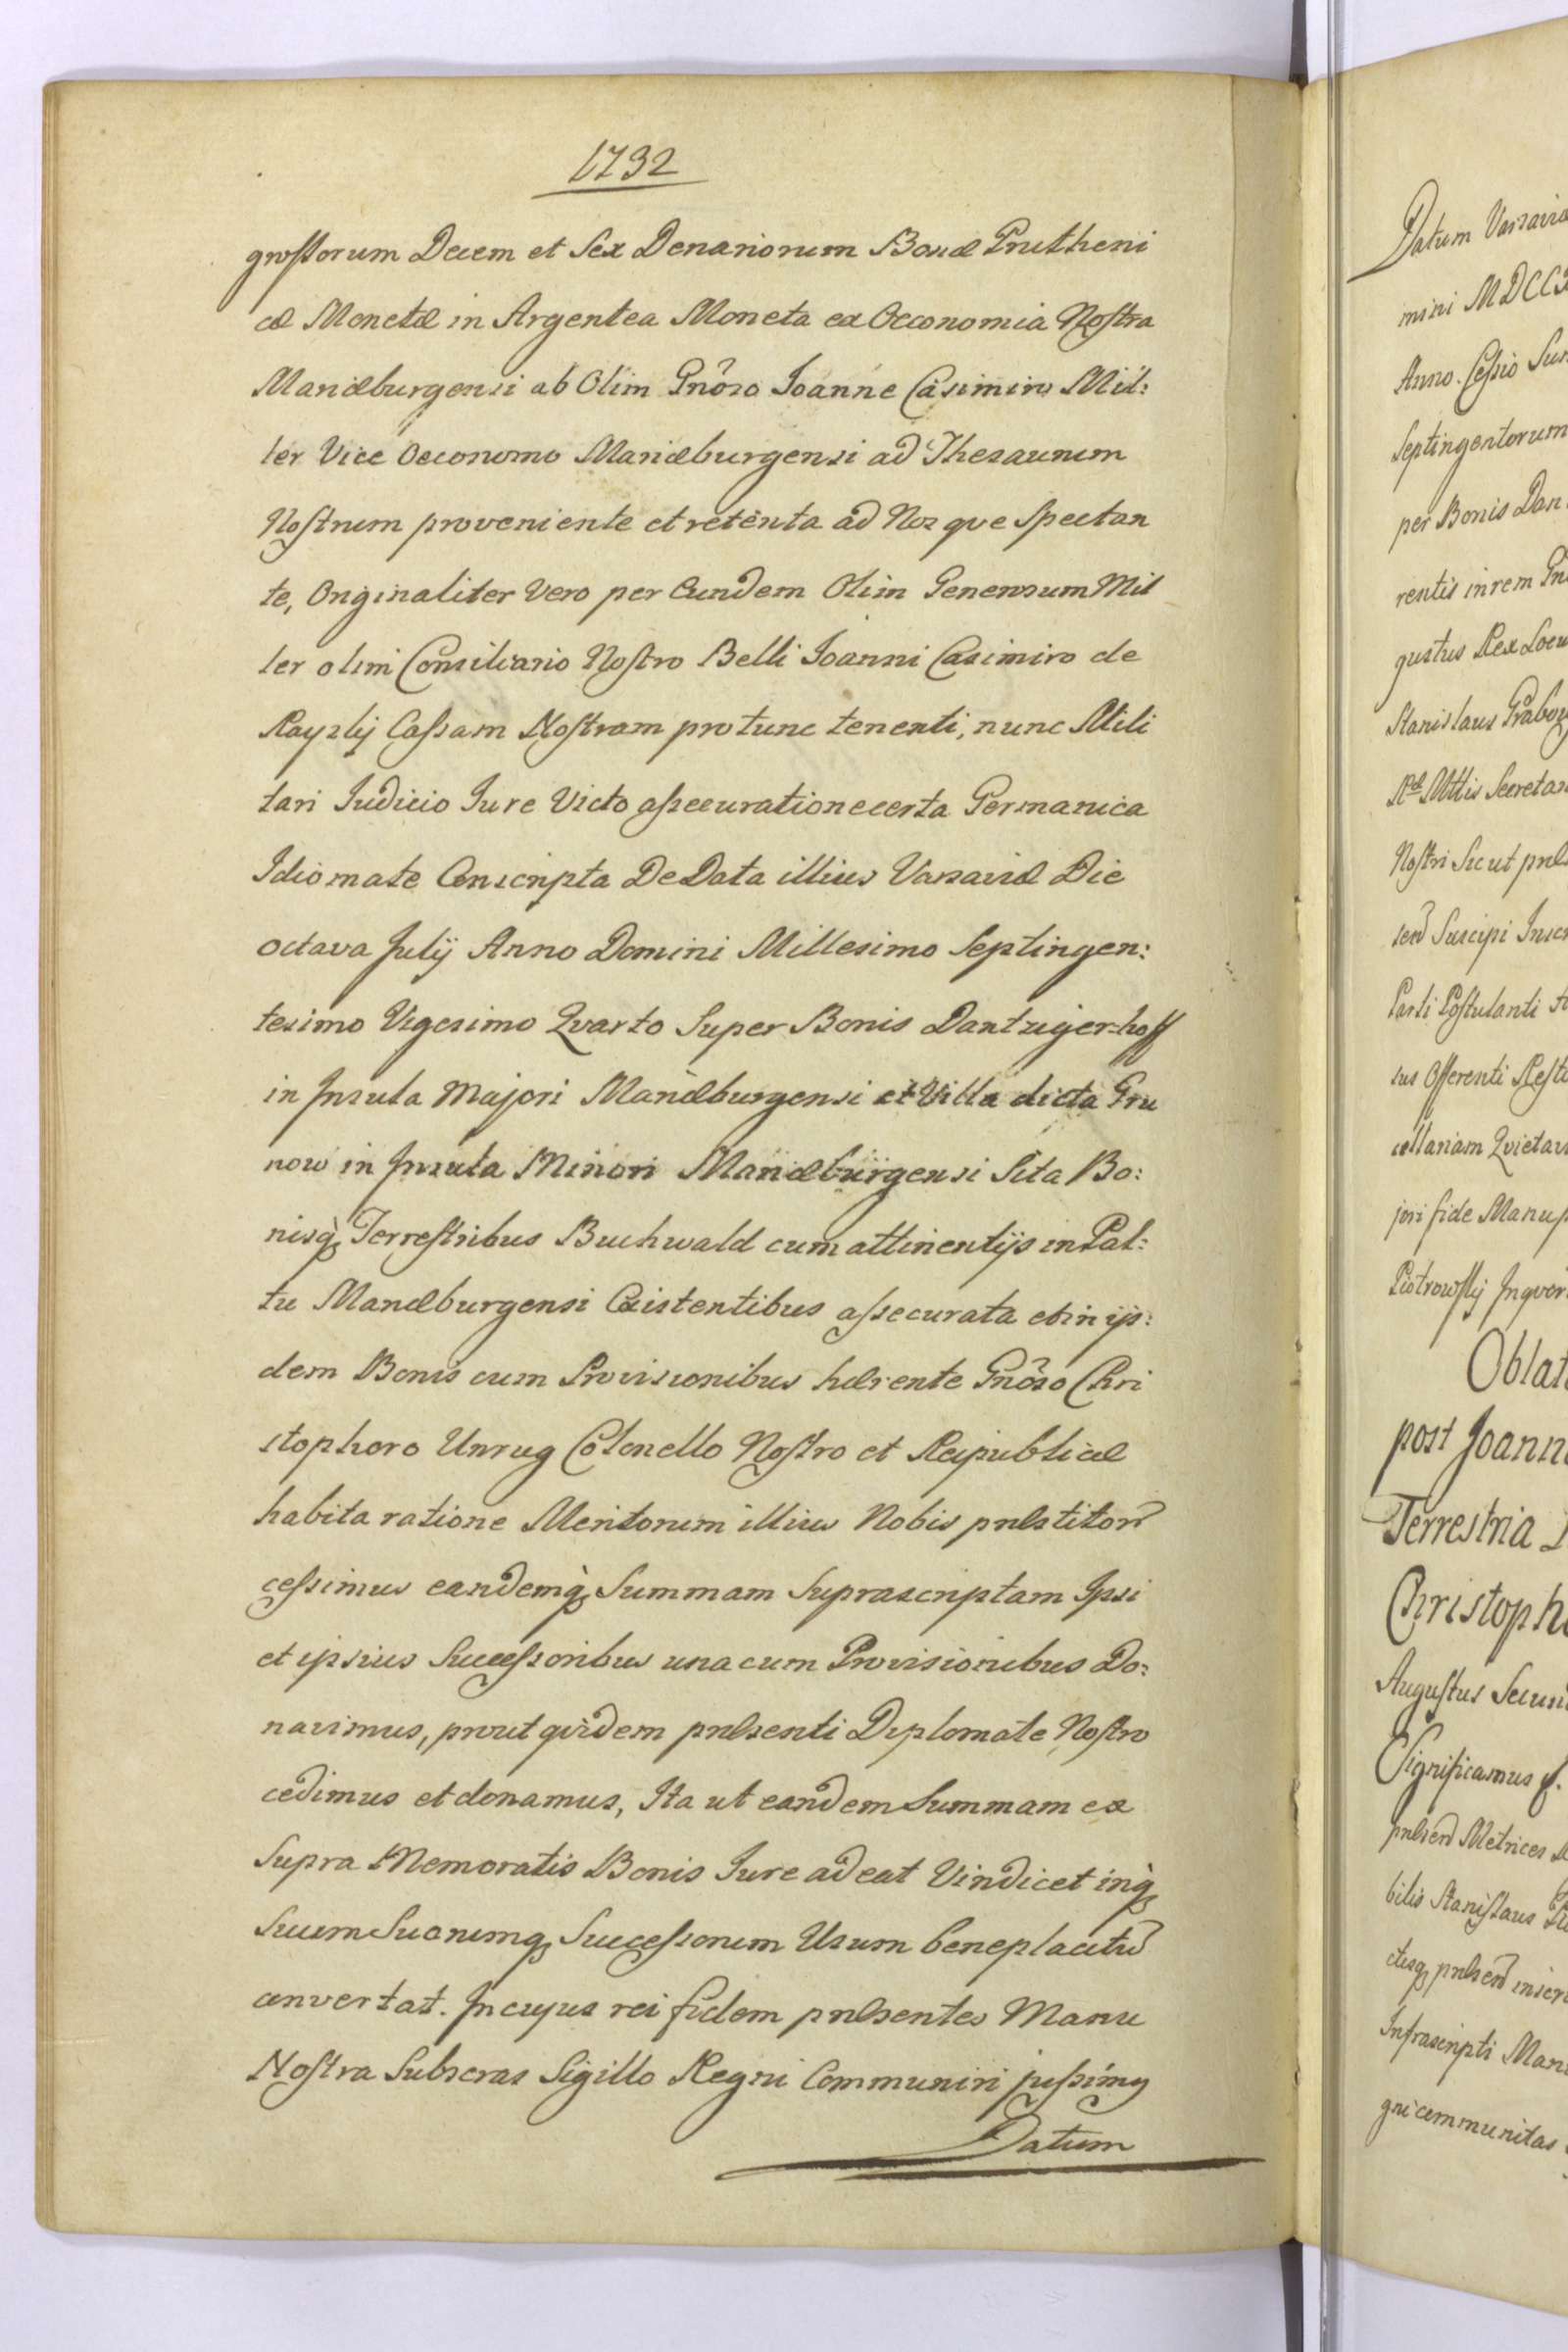 1732
grossorum Decem et Sex Denariorum Bonæ Prutheni
cæ Monetæ in Argentea Moneta ex Oeconomia Nostra
Mariæburgensi ab Olim Gnôso Joanne Casimiro Mil:
ler Vice Oeconomo Mariæburgensi ad Thesaurum
Nostrum proveniente et retenta ad Nos que Spectan
te, Originaliter Vero per Eundem Olim Generosum Mil
ler olim Consiliario Nostro Belli Joanni Casimiro de
Rayzkij Cassam Nostram protunc tenenti, nunc Mili
tari Judicio Jure Victo assecuratione certa Germanica
Idiomate Conscripta De Data illius Varsaviæ Die
octava Julij Anno Domini Millesimo Septingen:
tesimo Vigesimo Qvarto Super Bonis Dantzigerhoff
in Insula Majori Mariæburgensi et Villa dicta Gru
now in Insula Minori Mariæburgensi Sita Bo:
nisq̀ Terrestribus Buchwald cum attinentijs in Pal:
tu Mariæburgensi Existentibus assecurata et in ijs:
dem Bonis cum Provisionibus hærente Gnôso Chri
stophoro Unrug Colonello Nostro et Reipublicæ
habita ratione Meritorum illius Nobis præstitor
cessimus eandemq̀ Summam Suprascriptam Ipsi
et ipsius Successoribus una cum Provisionibus Do:
navimus, prout qvidem præsenti Diplomate Nostro
cedimus et donamus, Ita ut eandem Summam ex
Supra Memoratis Bonis Jure adeat Vindicet inq̀
Suum Suorumq Successorum Usum beneplacitu
convertat. In cujus rei fidem præsentes Manu
Nostra Subscras Sigillo Regni Communiri jussimq
Datum
Datum Varsaviæ
mini
Anno. Cessio Sum
Septingentorum
per Bonis Dan
rentis in rem
gustus Rex
Stanislaus
Mttis Secretar
Nostri Sicut
Suscipi
Parti Postulanti
sus Offerenti
Qvietav
jori fide Manu
Piotrowskij
Oblat
post Joann
Terrestria
Christoph
Augustus Secund
Significamus
Metrices
bilis Stanislaus
Infrascripti Man
gni communitas